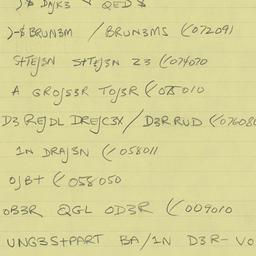 )-$ BRUN3M / BRUN3MS (/072091
S+TEJ3N S+TEJ3N 23 (/074070
A GROJS3R TOJ3R (/058010
D3 REJDL DREJC3X / D3R RUD (/076080
1N DRAJ3N (/058011
OJB+ (/058050
OB3R QGL OD3R (/009010
UNG3S+PART BA/1N D3R- VO